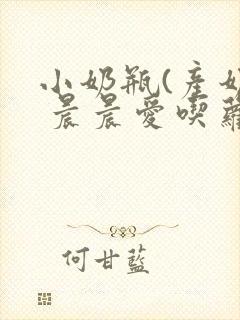 小奶瓶(產奶
晨晨愛喫蘿
何甘藍